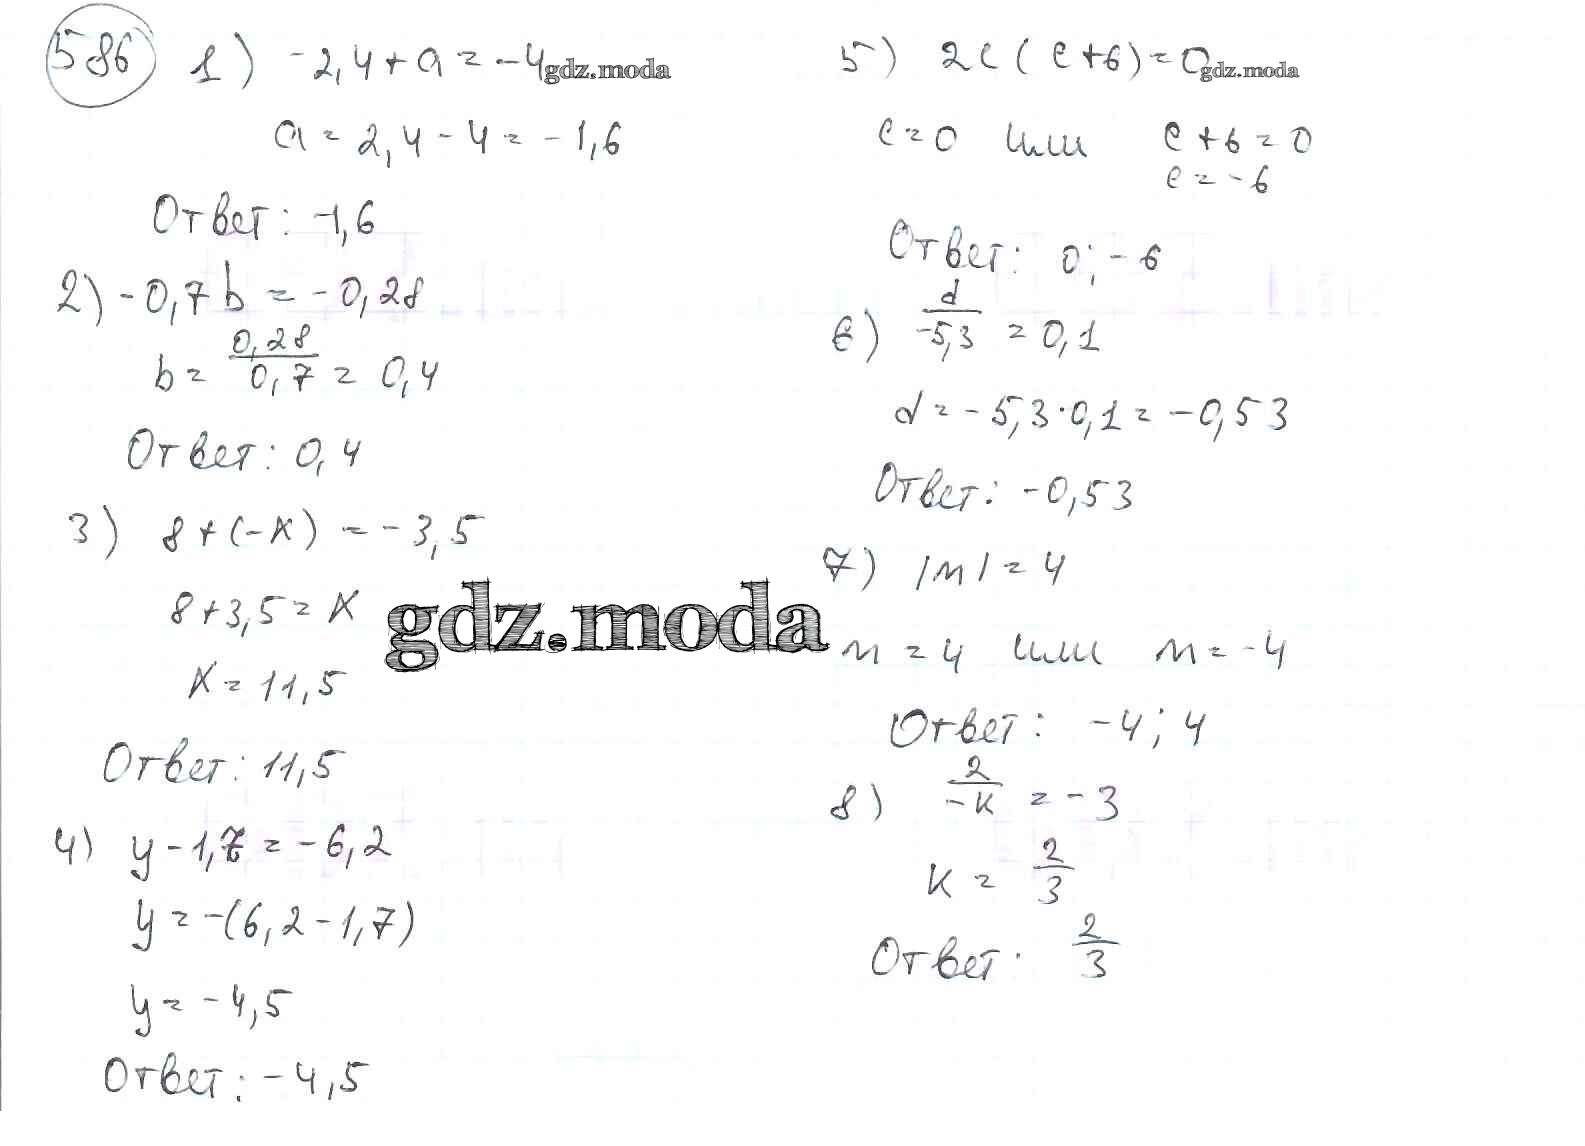 586 1) -2,4+a=-4
gdz.moda
a=2,4-4=-1,6
Ответ: -1,6
2) -0,7b=-0,28
b=0,28/0,7=0,4
Ответ: 0,4
3) 8+(-x)=-3,5
8+3,5=x
x=11,5
Ответ: 11,5
4) y-1,7=-6,2
y=-(6,2-1,7)
y=-4,5
Ответ: -4,5
gdz.moda
5) 2c(c+6)=0
gdz.moda
c=0 или c+6=0
c=-6
Ответ: 0; -6
6) d/-5,3=0,1
d=-5,3·0,1=-0,53
Ответ: -0,53
7) |m|=4
m=4 или m=-4
Ответ: -4; 4
8) 2/-k=-3
k=2/3
Ответ: 2/3